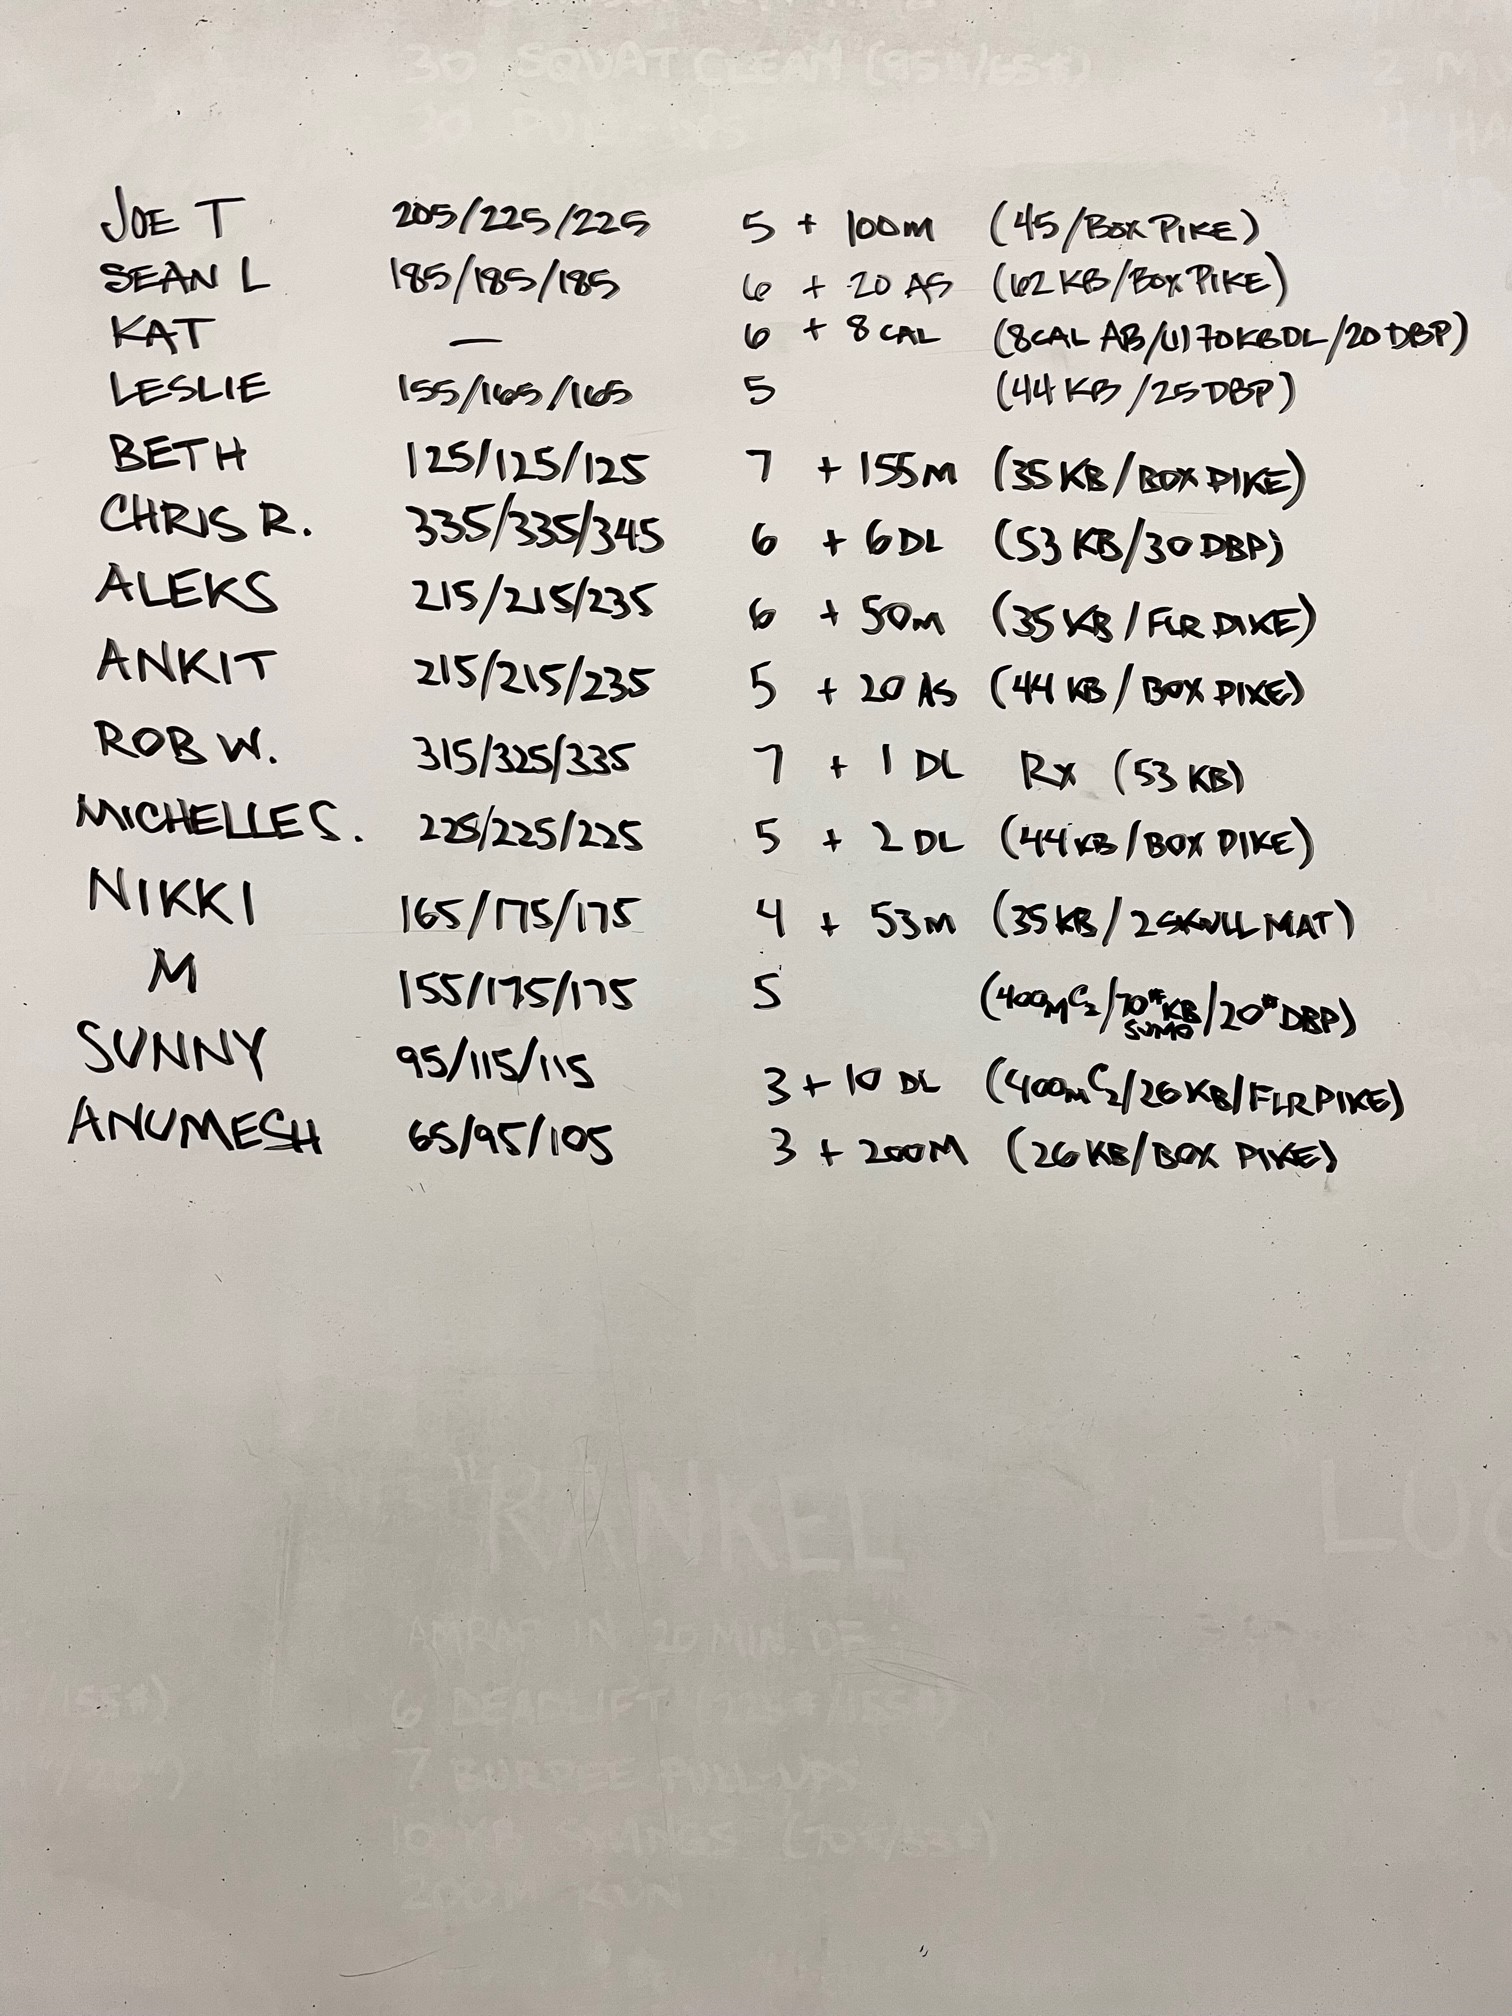 30 SQUAT CLEAN (95#/65#)
30 PULL-UPS
JOE T 205/225/225 5 + 100M (45/BOX PIKE)
SEAN L 185/185/185 6 + 20 AS (62 KB/BOX PIKE)
KAT — 6 + 8 CAL (8CAL AB/(1) 70KBDL/20 DBP)
LESLIE 155/165/165 5 (44 KB/25 DBP)
BETH 125/125/125 7 + 155M (35 KB/BOX PIKE)
CHRIS R. 335/335/345 6 + 6 DL (53 KB/30 DBP)
ALEKS 215/215/235 6 + 50M (35 KB/FLR PIKE)
ANKIT 215/215/235 5 + 20 AS (44 KB/BOX PIKE)
ROB W. 315/325/335 7 + 1 DL Rx (53 KB)
MICHELLE S. 225/225/225 5 + 2 DL (44 KB/BOX PIKE)
NIKKI 165/175/175 4 + 53M (35 KB/2 SKULL MAT)
M 155/175/175 5 (400M C2/70# KB SUMO/20# DBP)
SUNNY 95/115/115 3 + 10 DL (400M C2/26 KB/FLR PIKE)
ANUMESH 65/95/105 3 + 200M (26 KB/BOX PIKE)
"RANKEL
AMRAP IN 20 MIN. OF:
6 DEADLIFT (225#/155#)
7 BURPEE PULL-UPS
10 KB SWINGS (70#/53#)
200M RUN